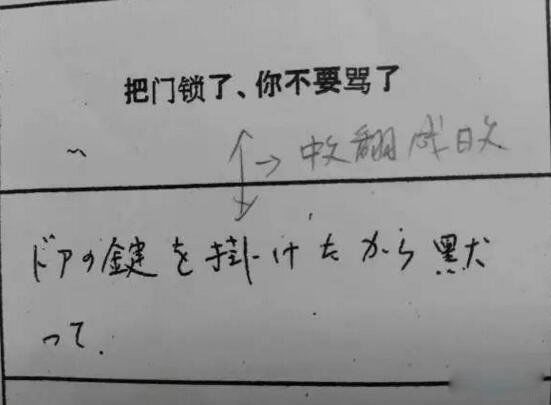 把门锁了、你不要骂了
→中文翻成日文
ドアの鍵を掛けたから黙
って.